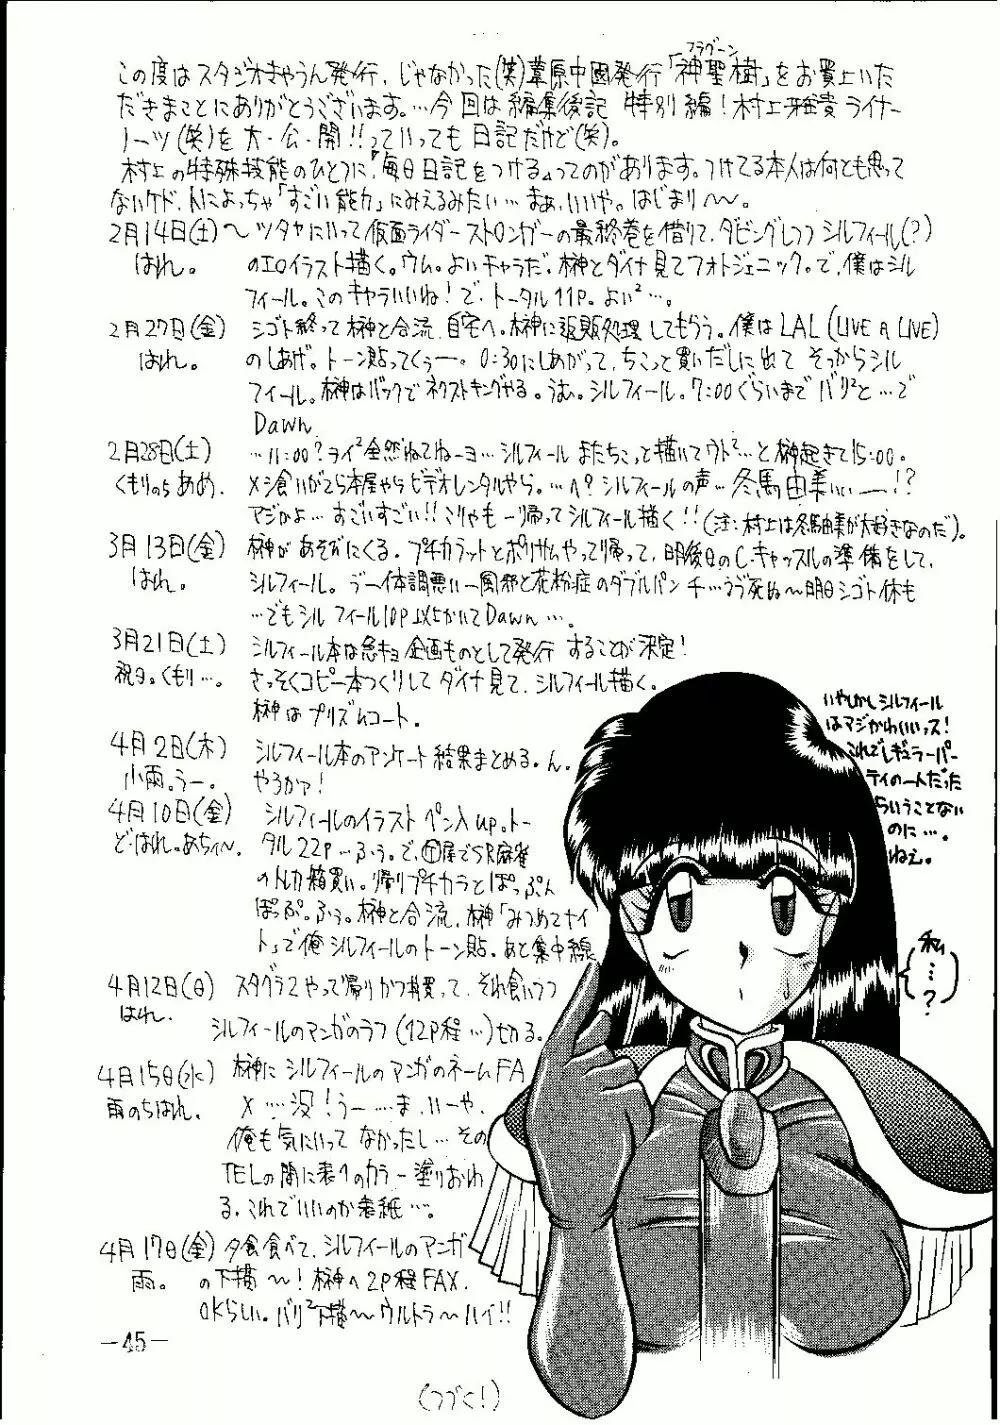 この度はスタジオきゃうん発行、じゃなかった(笑)葦原中國発行「神聖樹」をお買上いた
フラグーン
だきまことにありがとうございます。…今回は編集後記 特別編！村上雅貴ライナー
ノーツ(笑)を大・公・開!!っていっても日記だけど(笑)。
村上の特殊技能のひとつに『毎日日記をつける』ってのがあります。つけてる本人は何とも思って
ないケド、人によっちゃ「すごい能力」にみえるみたい…まぁ、いいや。はじまり〜〜。
2月14日(土)〜ツタヤにいって仮面ライダーストロンガーの最終巻を借りて、ダビングしつつシルフィール(?)
はれ。 のエロイラスト描く。ウム。よいキャラだ。榊とダイナ見てフォトジェニック。で、僕はシル
フィール。このキャラいいね！で、トータル11P。よい²…。
2月27日(金) シゴト終って榊と合流、自宅へ。榊に返販処理してもらう。僕はLAL(LIVE A LIVE)
はれ。 のしあげ。トーン貼ってくぅー。0:30にしあがって、ちこっと買いだしに出て そっからシル
フィール。榊はバックでネクストキングやる。うむ。シルフィール。7:00ぐらいまでバリ²と…で
Dawn.
2月28日(土) …11:00?ライ²全然ねてねーヨ…シルフィールまたちこっと描いてウト²…と榊起きて15:00。
くもりのちあめ. メシ食いがてら本屋やらビデオレンタルやら。…ハ?シルフィールの声…冬馬由美ぃぃー!?
マジかよ…すごいすごい!!こりゃもー帰ってシルフィール描く!!(注:村上は冬馬由美が大好きなのだ)。
3月13日(金) 榊があそびにくる。プチカラットとポリサムやって帰って、明後日のC.キャッスルの準備をして、
はれ。 シルフィール。うー体調悪いー風邪と花粉症のダブルパンチ…うぅ死ぬ〜明日シゴト休も
…でもシルフィール10P以上かいてDawn…。
3月21日(土) シルフィール本は急キョ企画ものとして発行することが決定！
祝日。くもり…。 さっそくコピー本つくりしてダイナ見て、シルフィール描く。
榊はプリズムコート。
4月2日(木) シルフィール本のアンケート結果まとめる。ん。
小雨。うー。 やろかァ！
4月10日(金) シルフィールのイラストペン入up。トー
ど・はれ。あちィ〜。 タル22P…ふぅ。で、屋でSR麻雀
のトレカ箱買い。帰りプチカラとぽっぷん
ぽっぷ。ふぅ。榊と合流、榊「みつめてナイ
ト」で俺シルフィールのトーン貼。あと集中線
4月12日(日) スタグラ2やって帰りかつ丼買って、それ食いつつ
はれ. シルフィールのマンガのラフ(12P程…)せかる。
4月15日(水) 榊にシルフィールのマンガのネームFA
雨のちはれ。 X……没！うー……ま、いーや、
俺も気にいってなかったし…その
TELの間に表ベのカラー塗りおわ
る。これでいいのか表紙…。
4月17日(金) 夕食食べて、シルフィールのマンガ
雨。 の下描〜！榊へ2P程FAX.
OKらしい。バリ²下描〜ウルトラ〜ハイ!!
いやしかしシルフィール
はマジかわいいっス！
これでレギュラーパー
ティの一人だった
らいうことない
のに…。
ねぇ。
私
…
?
―45―
(つづく！)